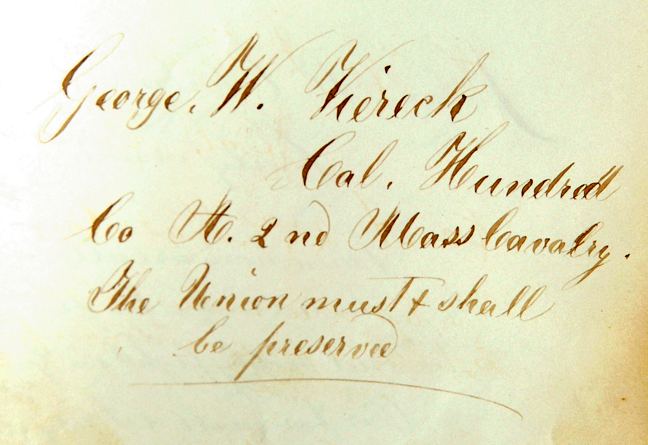 George. W. Viereck
Cal. Hundred
Co A. 2nd Mass Cavalry.
The Union must & shall
be preserved